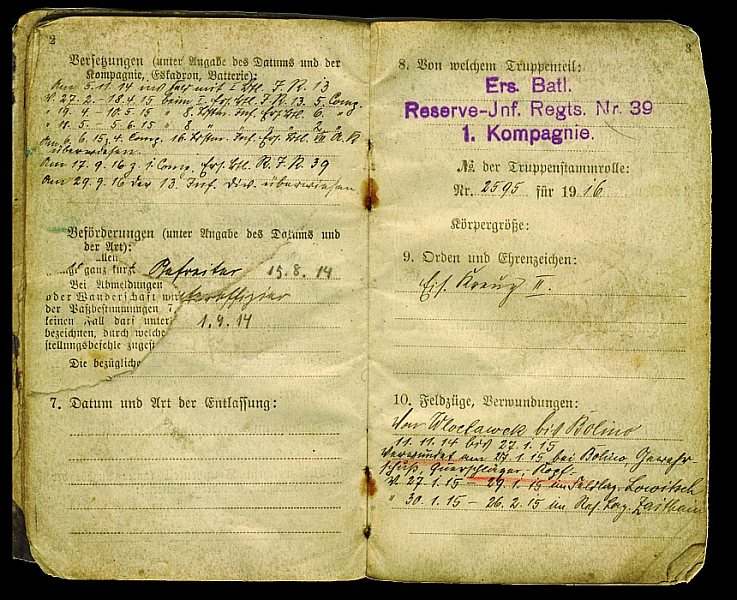 2
Versetzungen (unter Angabe des Datums und der
Kompagnie, Eskadron, Batterie):
Am 5.11.14 ins Feld mit I. Btl. J. R. 13
V. 27.2. - 18.4.15 beim I. Ers. Btl. J. R. 13. 5. Comp.
" 19.4. - 10.5.15 " 8. Inf. Ers. Btl. 6. "
" 11.5. - 5.6.15 " 8. "
6.15 4. Comp. 16. Inf. Ers. Btl. A. K.
überwiesen.
Am 17.9.16 z. 1. Comp. Ers. Btl. R. J. R. 39
Am 29.9.16 der 13. Inf. Div. überwiesen
Beförderungen (unter Angabe des Datums und
der Art):
allen
ganz kurze Gefreiter 15.8.14
Bei Abmeldungen
oder Wanderschaft Unteroffizier
der Paßbestimmungen
keinen Fall darf unter 1.9.14
bezeichnen, durch welche
stellungsbefehle zugest
Die bezügliche
7. Datum und Art der Entlassung:
3
8. Von welchem Truppenteil:
Ers. Batl.
Reserve-Jnf. Regts. Nr. 39
1. Kompagnie.
№ der Truppenstammrolle:
Nr. 2595 für 1916
Körpergröße:
9. Orden und Ehrenzeichen:
Eis. Kreuz II.
10. Feldzüge, Verwundungen:
Von Wloclawek bis Bolino
11.11.14 bis 27.1.15
Verwundet am 27.1.15 bei Bolino, Gewehr-
schuß, Querschläger, Kopf-
V. 27.1.15 - 29.1.15 im Feldlaz. Lowitsch
" 30.1.15 - 26.2.15 im Res. Laz. Zeithain